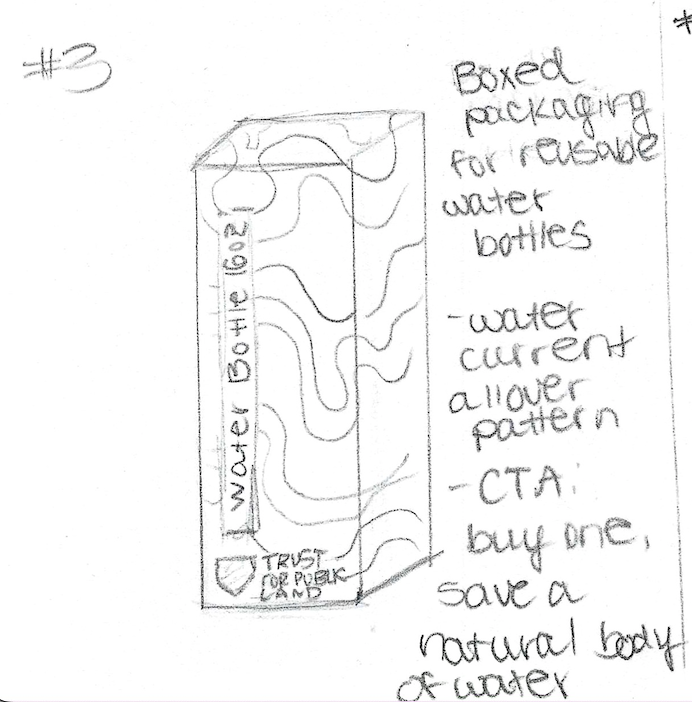 #3
Boxed
packaging
for reusable
water
bottles
-water
current
allover
pattern
-CTA:
buy one,
save a
natural body
of water
Water Bottle 16oz
TRUST
FOR PUBLIC
LAND
*